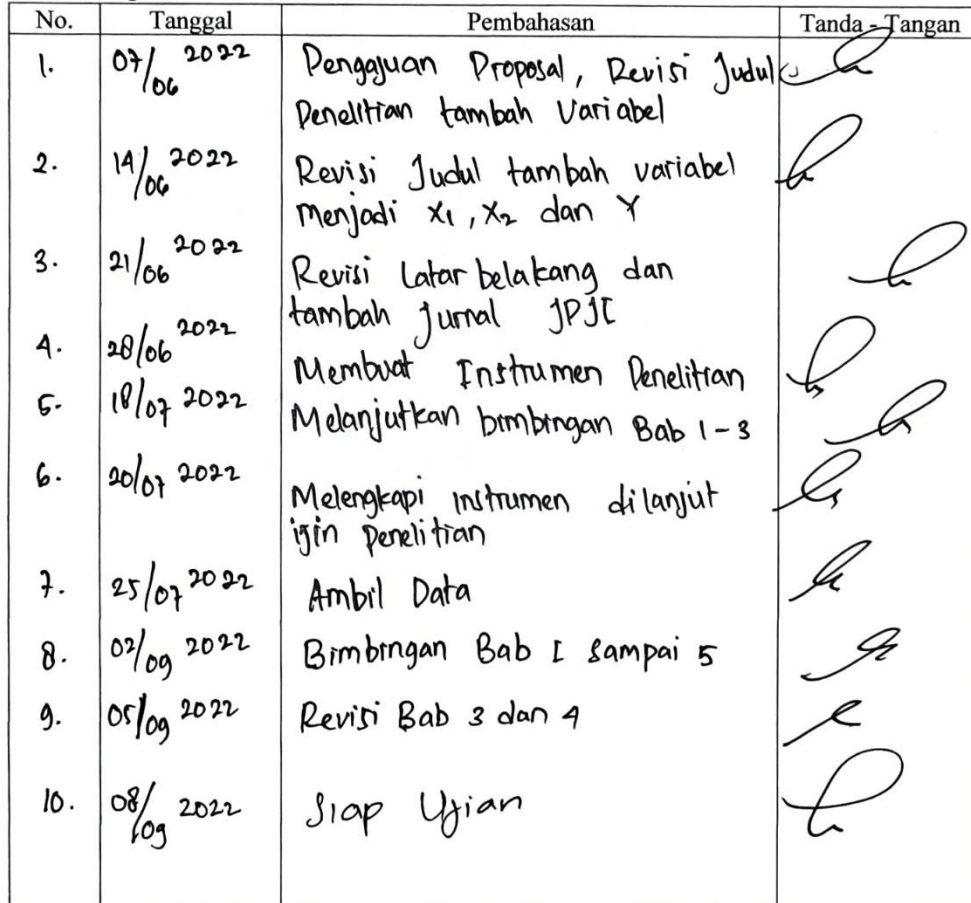 No. Tanggal Pembahasan Tanda - Tangan
1. 07/06 2022 Pengajuan Proposal, Revisi Judul
Penelitian tambah Variabel
2. 14/06 2022 Revisi Judul tambah variabel
menjadi X1, X2 dan Y
3. 21/06 2022 Revisi Latar belakang dan
tambah Jurnal JPJI
4. 28/06 2022 Membuat Instrumen Penelitian
5. 18/07 2022 Melanjutkan bimbingan Bab 1-3
6. 20/07 2022 Melengkapi instrumen dilanjut
ijin penelitian
7. 25/07 2022 Ambil Data
8. 02/09 2022 Bimbingan Bab I sampai 5
9. 05/09 2022 Revisi Bab 3 dan 4
10. 08/09 2022 Siap Ujian